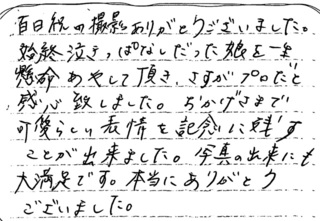 百日祝の撮影ありがとうございました。
始終泣きっぱなしだった娘を一生
懸命あやして頂き、さすがプロだと
感心致しました。おかげさまで
可愛らしい表情を記念に残す
ことが出来ました。写真の出来にも
大満足です。本当にありがとう
ございました。